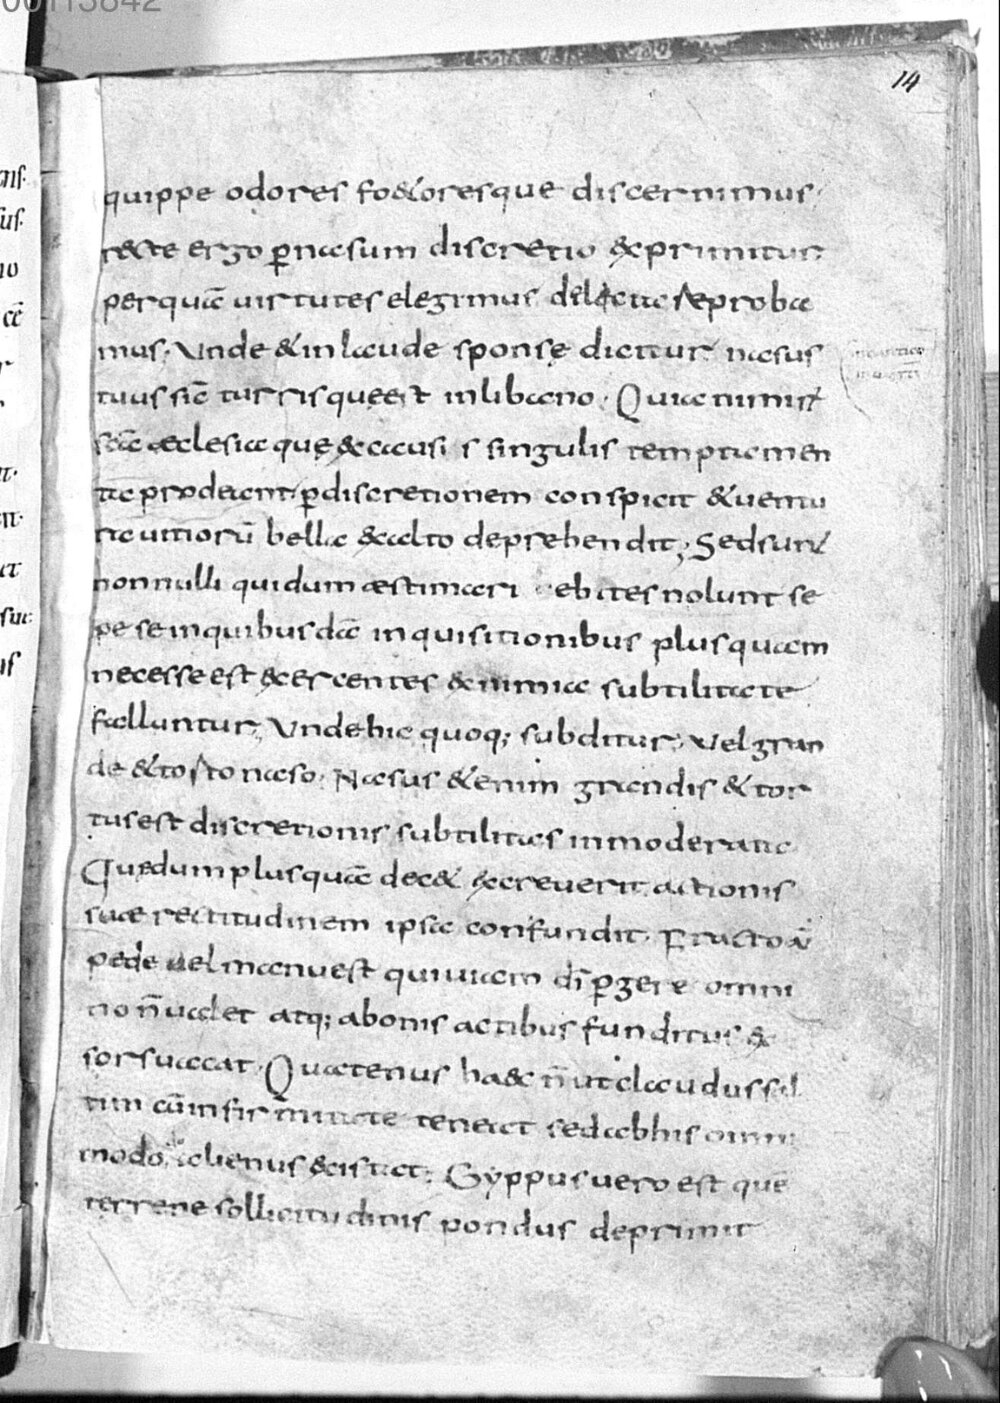 00113842
14
quippe odores fo&oresque discernimus
recte ergo p̱nasum discretio exprimitur
perquā uirtutes elegimus delicta reproba
mus. Unde & in laude sponsę dicitur nasus
tuus sic̄ turris quęest inlibano. Quia nimirū
sc̄a aeclesia quę & causis singulis temptamen
ta prodeant p̱discretionem conspicit & uentu
ra uitiorū bella exalto deprehendit; Sedsunt
nonnulli quidum aestimari ebetes nolunt se
pe se inquibusdā inquisitionibus plus quam
necesse est exercentes exnimia subtilitate
falluntur; Unde hic quoq; subditur; Uel gran
de & torto naso. Nasus &enim grandis & tor
tus est discretionis subtilitas inmoderata
Quędum plus quā dec& excreuerit actionis
suae rectitudinem ipsa confundit. Fracto
pede uel manu est qui uiam dī p̱gere omni
no n̄ ualet atq; abonis actibus funditus ex
sors uacat. Quatenus haec n̄ ut claudus sal
tim cū infirmitate teneat sed ab his omni
modo alienus existat; Gyppus uero est quē
terrene sollicitudinis pondus deprimit